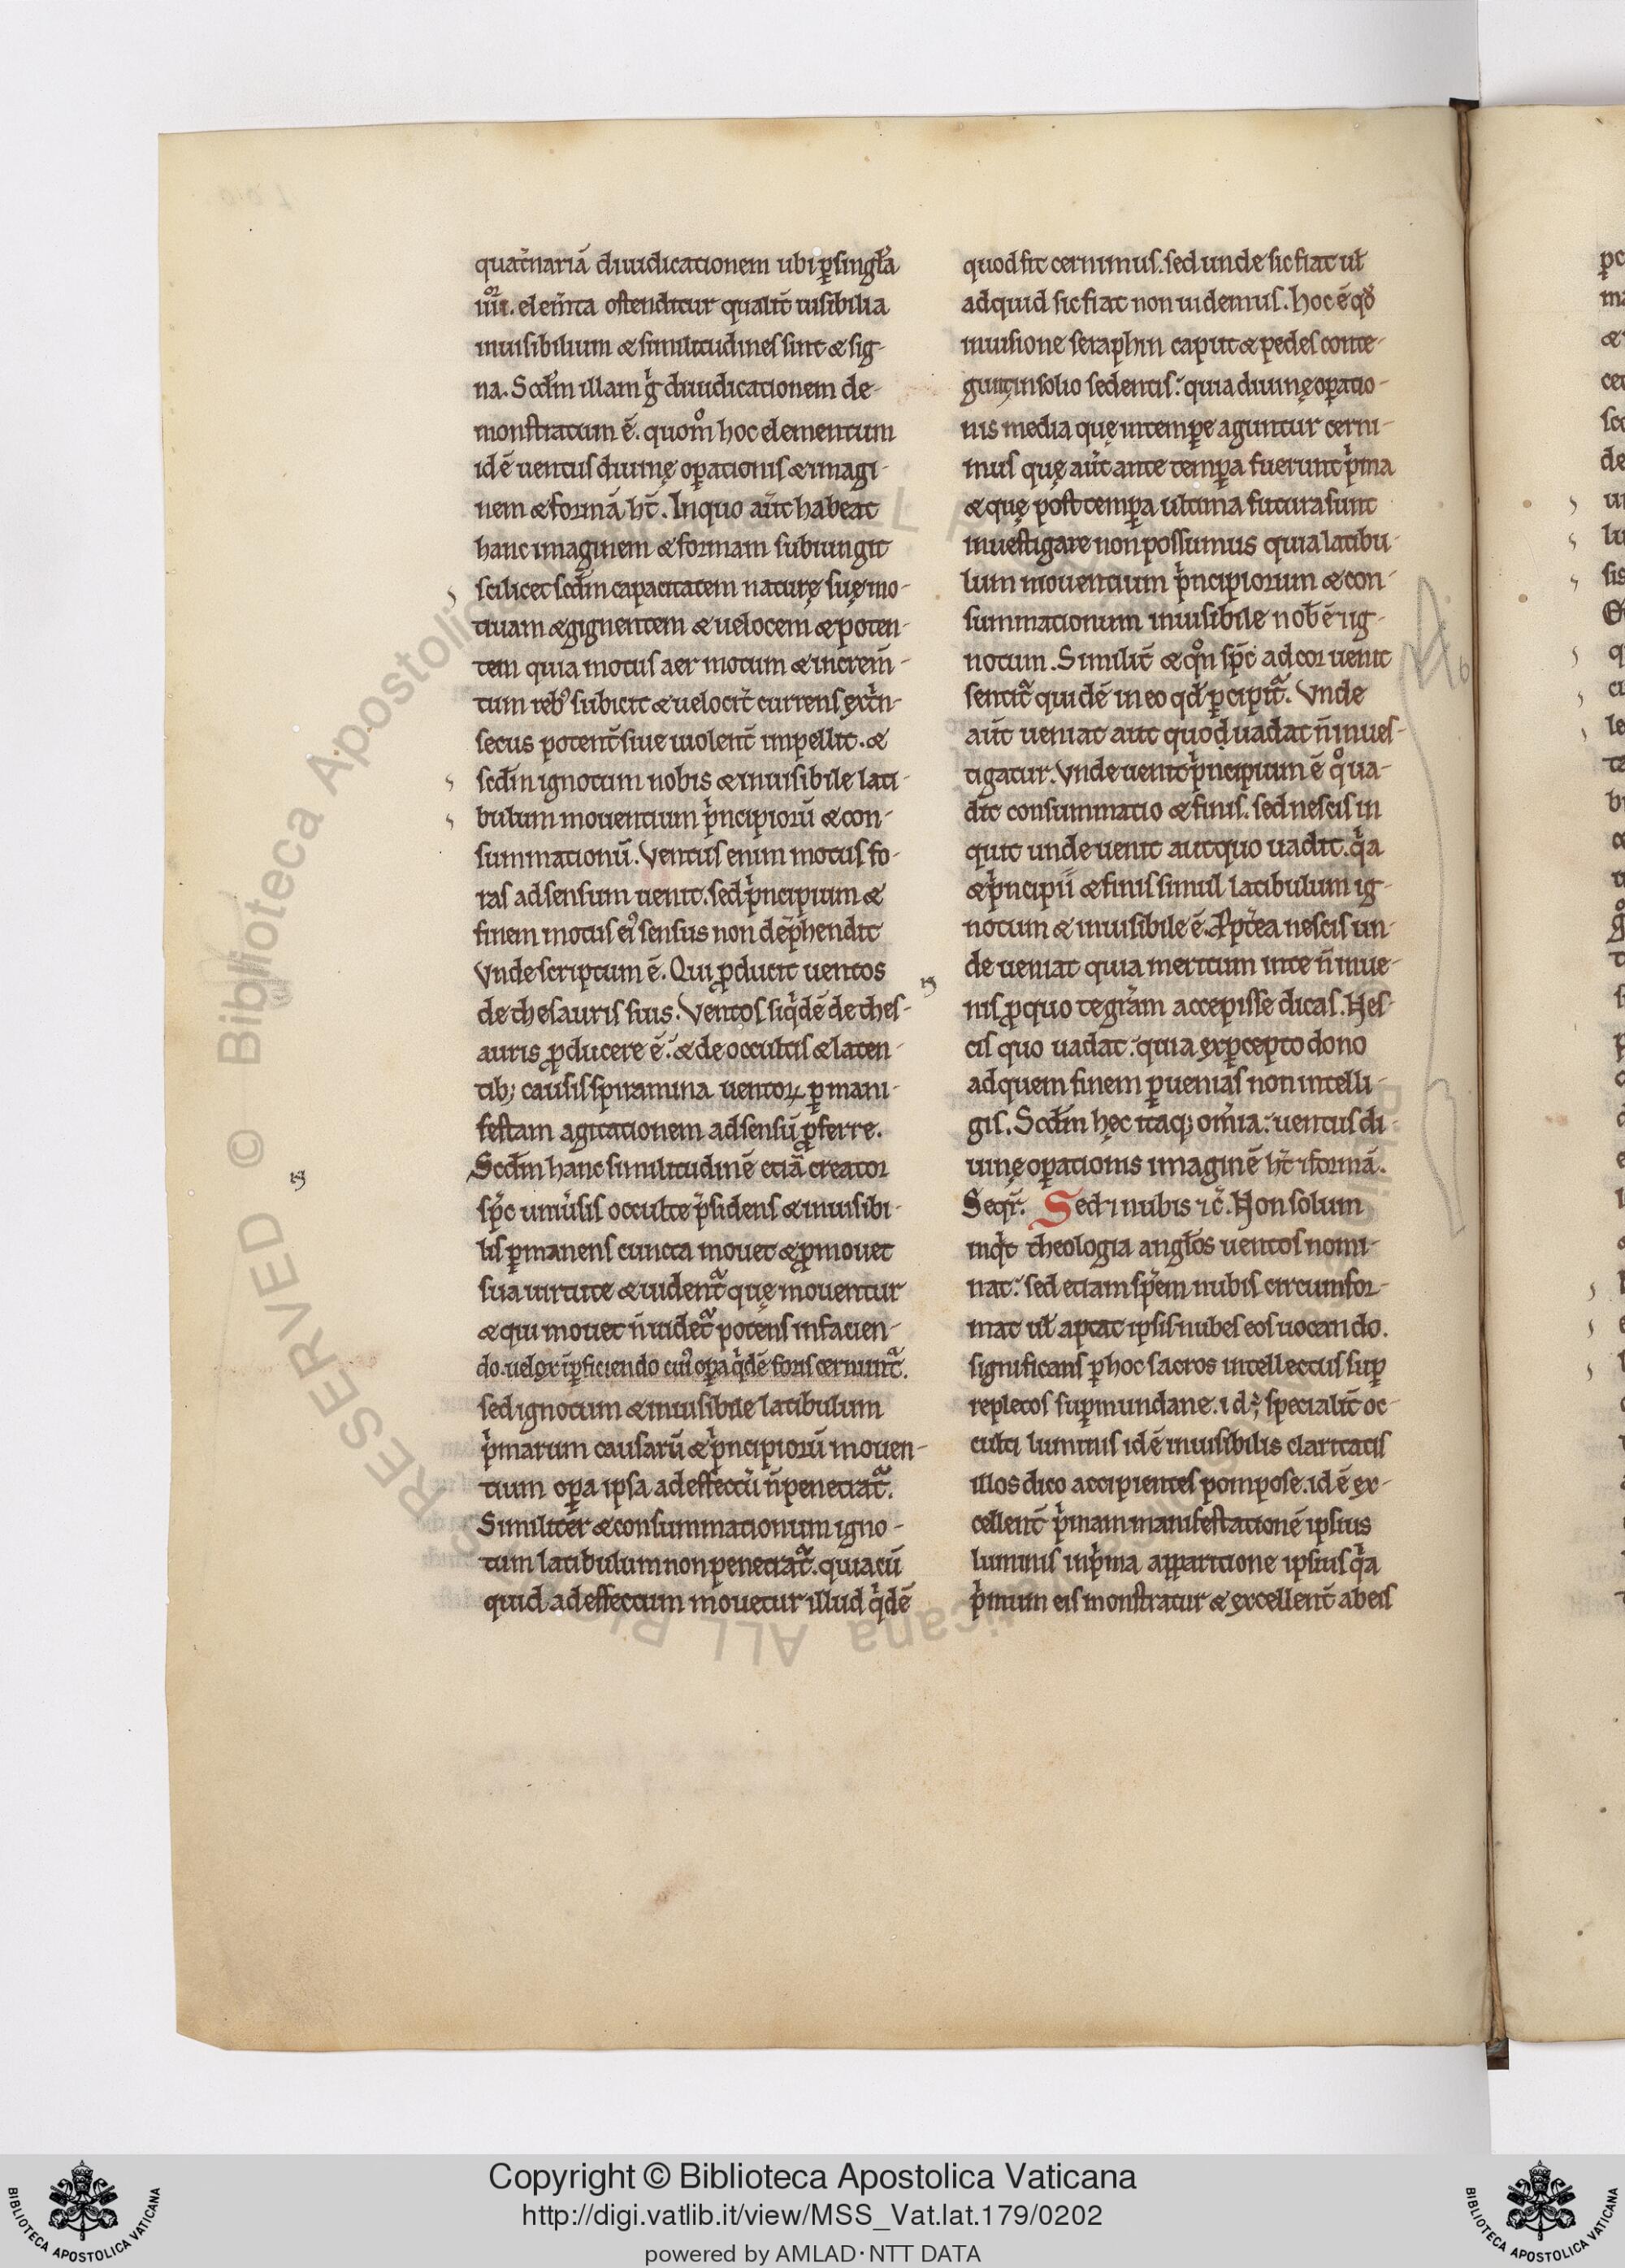 quat̄nariā diuidicationem ubi ꝑ singl̓a
iiiior. elem̄ta ostenditur qualit̄ uisibilia
inuisibilium & similitudines sint & sig-
na. Scd̓m illam gͥ diuidicationem de-
monstratum ē. quom̊ hoc elementum
id ē uentus diuinę oꝑationis & imagi-
nem & formā ht̄. In quo aūt habeat
hanc imaginem & formam subiungit
scilicet scd̓m capacitatem naturę suę mo-
tiuam & gignentem & uelocem & poten-
tem quia motus aer motum & increm̄-
tum reb᷒ subicit & uelocit̄ currens ext̓n-
secus potent̄ siue uiolent̄ impellit. &
scd̓m ignotum nobis & inuisibile lati-
bulum mouentium pͥncipiorū & con-
summationū. Ventus enim motus fo-
ras ad sensum uenit. sed pͥncipium &
finem motus ei᷒ sensus non dep̄hendit
Vnde scriptum ē. Qui ꝓducit uentos
de thesauris suis. Ventos siqͥdē de thes-
auris ꝓducere ē. & de occultis & laten-
tib; causis spiramina uentoꝝ ꝑ mani-
festam agitationem ad sensū ꝓferre.
Scd̓m hanc similitudinē etiā creator
sp̄c uniu̓sis occulte p̄sidens & inuisibi-
lis ꝑmanens cuncta mouet & ꝓmouet
sua uirtute & uident᷑ quę mouentur
& qui mouet n̄ uidet᷑ potens in facien-
do. uelox iꝑficiendo cui᷒ oꝑa qͥdē foris cernunt᷑.
sed ignotum & inuisibile latibulum
pͥmarum causarū & pͥncipiorū mouen-
tium oꝑa ipsa ad effectū n̄ penetrat᷑.
Similiter & consummationum igno-
tum latibulum non penetrat᷑. quia cū
quid ad effectum mouetur illud qͥdē
quod fit cernimus. sed unde sic fiat ul̄
ad quid sic fiat non uidemus. hoc ē qd̓
in uisione seraphin caput & pedes conte-
gunt in solio sedentis. quia diuinę oꝑatio-
nis media quę in temꝑe aguntur cerni-
mus quę aūt ante temꝑa fuerunt pͥma
& quę post temꝑa ultima futura sunt
inuestigare non possumus quia latibu-
lum mouentium pͥncipiorum & con-
summationum inuisibile nob̄ ē ig-
notum. Similit̄ & qn̊ sp̄c ad cor uenit
sentit᷑ quidē in eo qd̓ ꝑcipit᷑. Vnde
aūt ueniat aut quo uadat n̄ inues-
tigatur. Vnde uenit pͥncipium ē q̊ ua-
dit consummatio & finis. sed nescis in
quit unde uenit aut quo uadit. qͥa
& pͥncipii & finis simul latibulum ig-
notum & inuisibile ē. Ꝓpt̓ea nescis un-
de ueniat quia meritum in te n̄ inue-
nis ꝓ quo te gr̄am accepisse dicas. Nes-
cis quo uadat. quia ex ꝑcepto dono
ad quem finem ꝑuenias non intelli-
gis. Scd̓m hęc itaq; om̄ia. uentus di-
uinę oꝑationis imaginē ht̄ ⁊ formā.
Seqr̄. Sed ⁊ nubis ⁊c̄. Non solum
inqͥt theologia angl̓os uentos nomi-
nat. sed etiam spēm nubis circumfor-
mat ul̄ aptat ipsis nubes eos uocando.
significans ꝑ hoc sacros intellectus suꝑ
repletos suꝑmundane. id ē specialit̄ oc-
culti luminis id ē inuisibilis claritatis
illos dico accipientes pompose. id ē ex-
cellent̄ pͥmam manifestationē ipsius
luminis in pͥma apparitione ipsius qͥa
pͥmum eis monstratur & excellent̄ ab eis
© Biblioteca Apostolica Vaticana ALL RIGHTS RESERVED
Copyright © Biblioteca Apostolica Vaticana
http://digi.vatlib.it/view/MSS_Vat.lat.179/0202
powered by AMLAD·NTT DATA
BIBLIOTECA APOSTOLICA VATICANA
BIBLIOTECA APOSTOLICA VATICANA